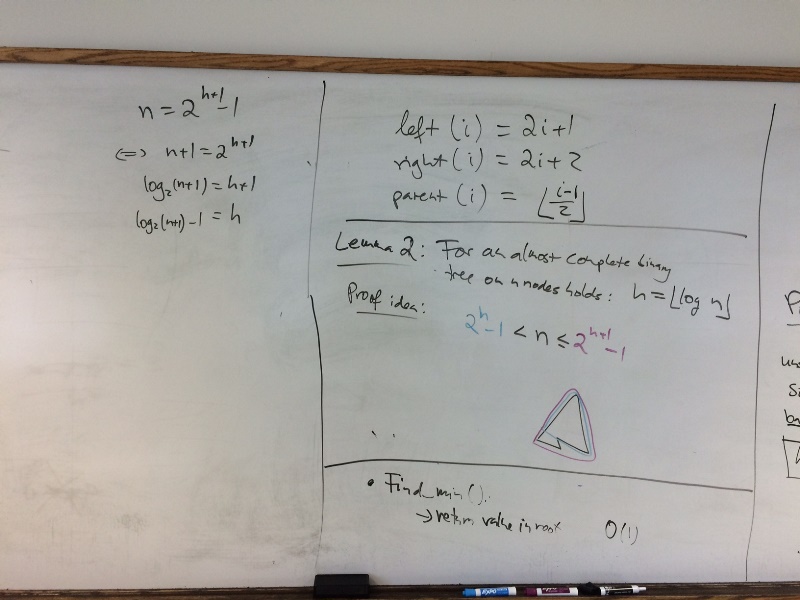 n = 2^{h+1} - 1
⟺ n+1 = 2^{h+1}
log₂(n+1) = h+1
log₂(n+1) - 1 = h
left (i) = 2i+1
right (i) = 2i+2
parent (i) = ⌊(i-1)/2⌋
Lemma 2: For an almost complete binary
tree on n nodes holds: h = ⌊log n⌋
Proof idea:
2^h - 1 < n ≤ 2^{h+1} - 1
• Find_min().
→ return value in root O(1)